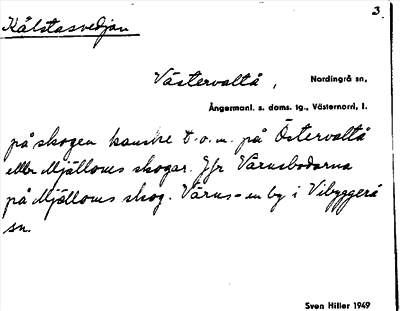 3.
Kålstasvedjan
Västervalta, Nordingrå sn,
Ångermanl. s. doms. tg., Västernorrl. l.
på skogen kanske t.o.m. på Östervalta
eller Mjälloms skogar. Jfr Värnsbodarna
på Mjälloms skog. Värns = en by i Vibyggerå
sn.
Sven Hiller 1949